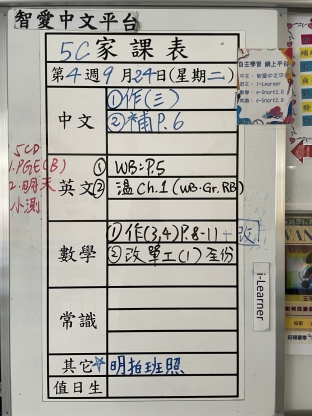 智愛中文平台
5C家課表
第4週9月24日(星期二)
中文
①作(三)
②補P.6
5CD
1.PGE(B)
2.明天
小測
英文
① WB:P.5
② 溫Ch.1(WB.Gr.RB)
數學
①作(3,4)P.8-11+改
②改單工(1)全份
常識
其它
☆明拍班照
值日生
自主學習 網上平台
i-Learner